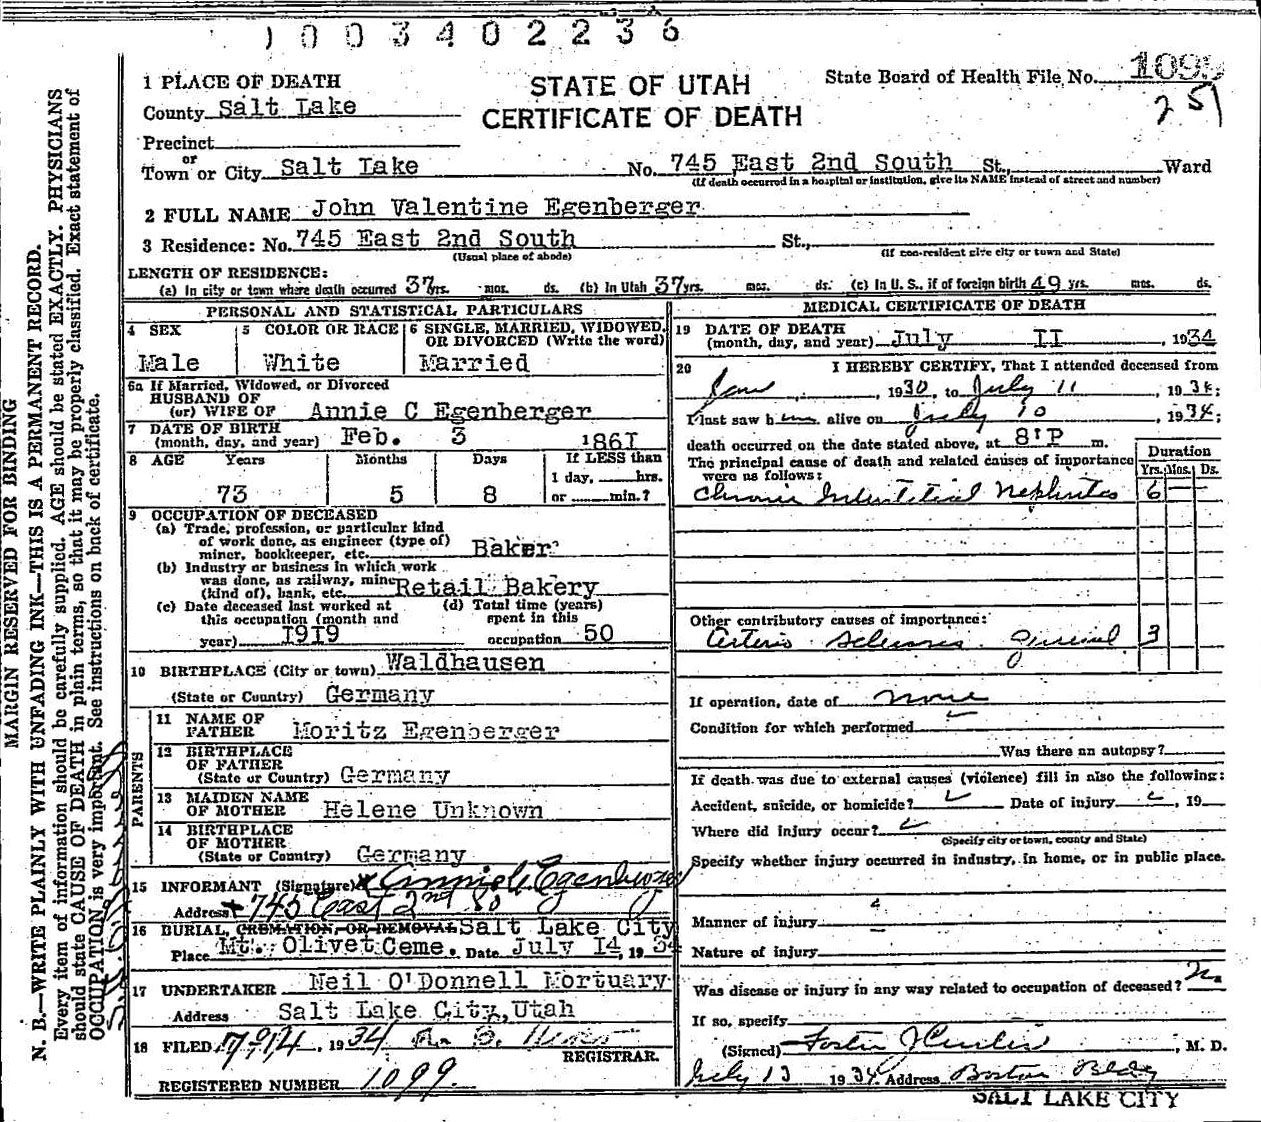 1003402236
1 PLACE OF DEATH
STATE OF UTAH
CERTIFICATE OF DEATH
State Board of Health File No. 1099
251
County Salt Lake
Precinct
or
Town or City Salt Lake No. 745 East 2nd South St., Ward
(If death occurred in a hospital or institution, give its NAME instead of street and number)
2 FULL NAME John Valentine Egenberger
3 Residence: No. 745 East 2nd South St.,
(Usual place of abode) (If non-resident give city or town and State)
LENGTH OF RESIDENCE:
(a) In city or town where death occurred 37 yrs. mos. ds. (b) In Utah 37 yrs. mos. ds. (c) In U. S., if of foreign birth 49 yrs. mos. ds.
PERSONAL AND STATISTICAL PARTICULARS
4 SEX 5 COLOR OR RACE 6 SINGLE, MARRIED, WIDOWED, OR DIVORCED (Write the word)
Male White Married
6a If Married, Widowed, or Divorced
HUSBAND OF
(or) WIFE OF Annie C Egenberger
7 DATE OF BIRTH
(month, day, and year) Feb. 3 1861
8 AGE Years Months Days If LESS than
1 day, hrs.
73 5 8 or min.?
9 OCCUPATION OF DECEASED
(a) Trade, profession, or particular kind
of work done, as engineer (type of)
miner, bookkeeper, etc. Baker
(b) Industry or business in which work
was done, as railway, mine
(kind of), bank, etc. Retail Bakery
(c) Date deceased last worked at
this occupation (month and
year) 1919
(d) Total time (years)
spent in this
occupation 50
10 BIRTHPLACE (City or town) Waldhausen
(State or Country) Germany
PARENTS
11 NAME OF
FATHER Moritz Egenberger
12 BIRTHPLACE
OF FATHER
(State or Country) Germany
13 MAIDEN NAME
OF MOTHER Helene Unknown
14 BIRTHPLACE
OF MOTHER
(State or Country) Germany
15 INFORMANT (Signature) x Annie C. Egenberger
Address x 745 East 2nd So
16 BURIAL, CREMATION, OR REMOVAL Salt Lake City
Place Mt. Olivet Ceme. Date July 14, 1934
17 UNDERTAKER Neil O'Donnell Mortuary
Address Salt Lake City, Utah
18 FILED 7/14, 1934
REGISTRAR.
REGISTERED NUMBER 1099.
MEDICAL CERTIFICATE OF DEATH
19 DATE OF DEATH
(month, day, and year) July II, 1934
20 I HEREBY CERTIFY, That I attended deceased from
Jan, 1930, to July 11, 1934;
I last saw him alive on July 10 1934;
death occurred on the date stated above, at 8:P m.
The principal cause of death and related causes of importance
were as follows:
Duration
Yrs. Mos. Ds.
Chronic Interstitial Nephritis 6
Other contributory causes of importance:
Arterio Sclerosis general 3
If operation, date of none
Condition for which performed
Was there an autopsy?
If death was due to external causes (violence) fill in also the following:
Accident, suicide, or homicide? Date of injury , 19
Where did injury occur?
(Specify city or town, county and State)
Specify whether injury occurred in industry, in home, or in public place.
Manner of injury
Nature of injury
Was disease or injury in any way related to occupation of deceased? No
If so, specify
(Signed) Foster J Curtis, M. D.
July 13 1934 Address Boston Bldg
SALT LAKE CITY
MARGIN RESERVED FOR BINDING
N. B.—WRITE PLAINLY WITH UNFADING INK—THIS IS A PERMANENT RECORD.
Every item of information should be carefully supplied. AGE should be stated EXACTLY. PHYSICIANS
should state CAUSE OF DEATH in plain terms, so that it may be properly classified. Exact statement of
OCCUPATION is very important. See instructions on back of certificate.